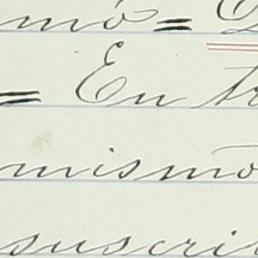 mó=
= En tr
mismo
suscri